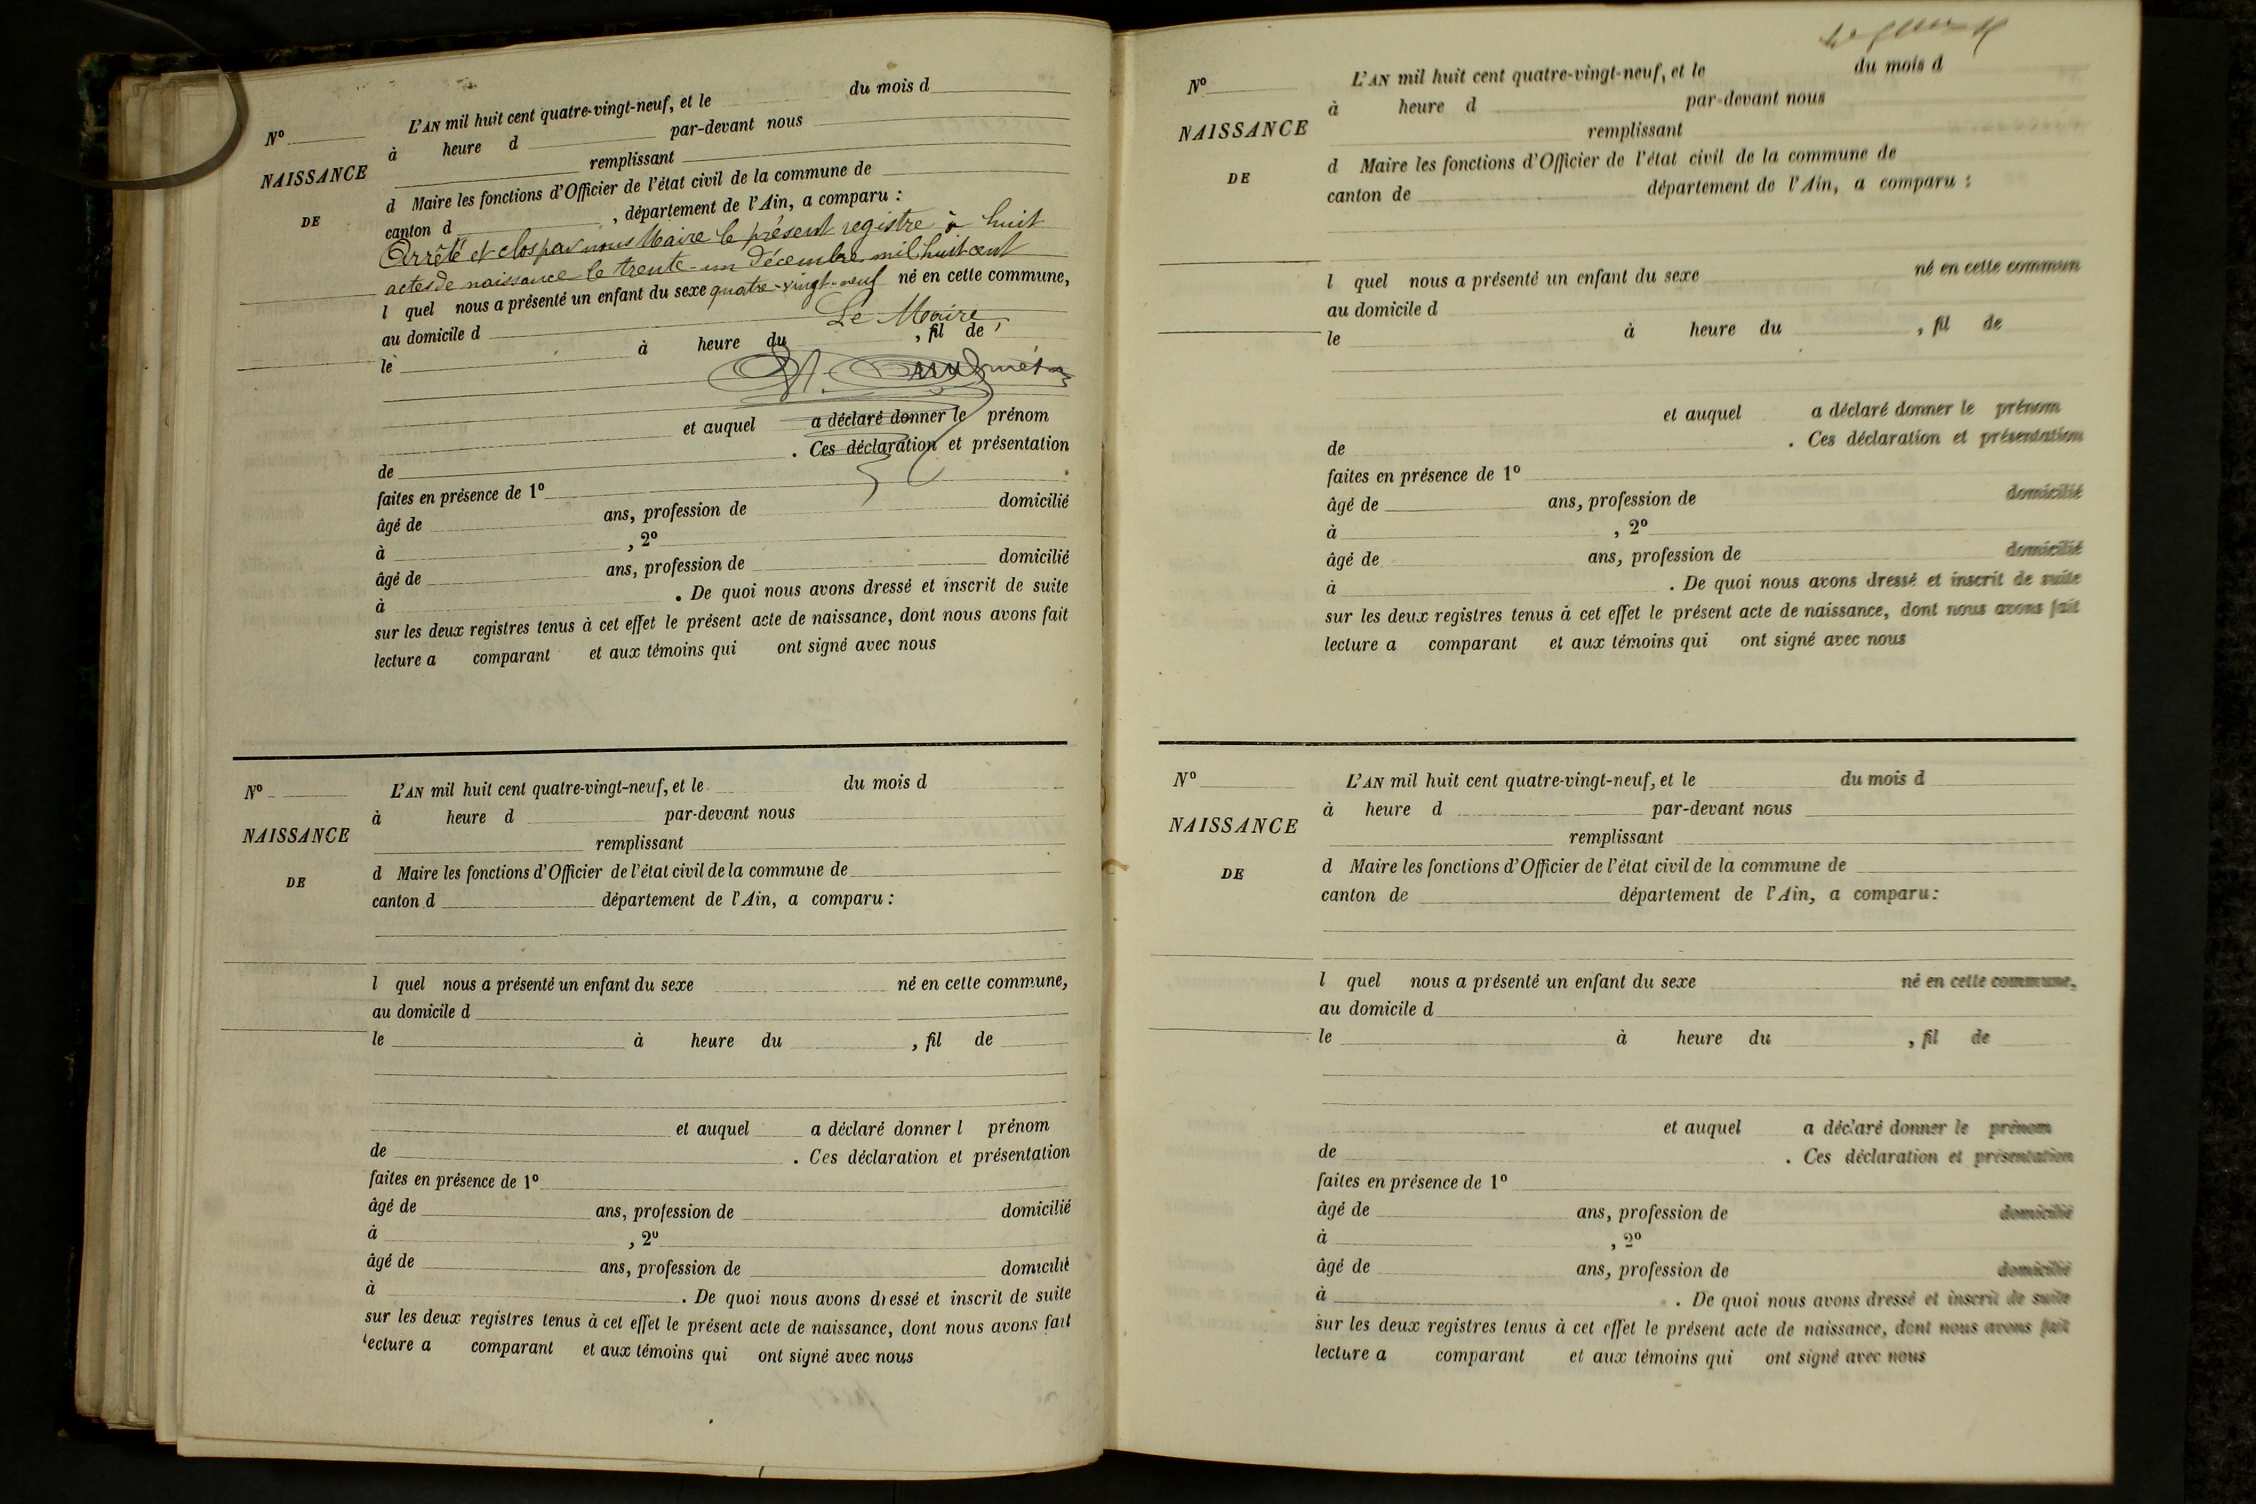 L'AN mil huit cent quatre-vingt-neuf, et le du mois d
N° à heure d par-devant nous
NAISSANCE remplissant
d Maire les fonctions d'Officier de l'état civil de la commune de
DE canton d , département de l'Ain, a comparu :
Arrêté et clos par nous Maire le présent registre à huit
actes de naissance le trente-un Décembre mil huit cent
l quel nous a présenté un enfant du sexe quatre-vingt-neuf né en cette commune,
Le Maire
au domicile d
le à heure du , fil de
et auquel a déclaré donner le prénom
de . Ces déclaration et présentation
faites en présence de 1°
âgé de ans, profession de domicilié
à , 2°
âgé de ans, profession de domicilié
à . De quoi nous avons dressé et inscrit de suite
sur les deux registres tenus à cet effet le présent acte de naissance, dont nous avons fait
lecture a comparant et aux témoins qui ont signé avec nous
N° L'AN mil huit cent quatre-vingt-neuf, et le du mois d
à heure d par-devant nous
NAISSANCE remplissant
DE d Maire les fonctions d'Officier de l'état civil de la commune de
canton d département de l'Ain, a comparu :
l quel nous a présenté un enfant du sexe né en cette commune,
au domicile d
le à heure du , fil de
et auquel a déclaré donner l prénom
de . Ces déclaration et présentation
faites en présence de 1°
âgé de ans, profession de domicilié
à , 2°
âgé de ans, profession de domicilié
à . De quoi nous avons dressé et inscrit de suite
sur les deux registres tenus à cet effet le présent acte de naissance, dont nous avons fait
lecture a comparant et aux témoins qui ont signé avec nous
N° L'AN mil huit cent quatre-vingt-neuf, et le du mois d
à heure d par-devant nous
NAISSANCE remplissant
d Maire les fonctions d'Officier de l'état civil de la commune de
DE canton de département de l'Ain, a comparu :
l quel nous a présenté un enfant du sexe né en cette commun
au domicile d
le à heure du , fil de
et auquel a déclaré donner le prénom
de . Ces déclaration et présentation
faites en présence de 1°
âgé de ans, profession de domicilié
à , 2°
âgé de ans, profession de domicilié
à . De quoi nous avons dressé et inscrit de suite
sur les deux registres tenus à cet effet le présent acte de naissance, dont nous avons fait
lecture a comparant et aux témoins qui ont signé avec nous
N° L'AN mil huit cent quatre-vingt-neuf, et le du mois d
à heure d par-devant nous
NAISSANCE remplissant
DE d Maire les fonctions d'Officier de l'état civil de la commune de
canton de département de l'Ain, a comparu :
l quel nous a présenté un enfant du sexe né en cette commune,
au domicile d
le à heure du , fil de
et auquel a déclaré donner le prénom
de . Ces déclaration et présentation
faites en présence de 1°
âgé de ans, profession de domicilié
à , 2°
âgé de ans, profession de domicilié
à . De quoi nous avons dressé et inscrit de suite
sur les deux registres tenus à cet effet le présent acte de naissance, dont nous avons fait
lecture a comparant et aux témoins qui ont signé avec nous